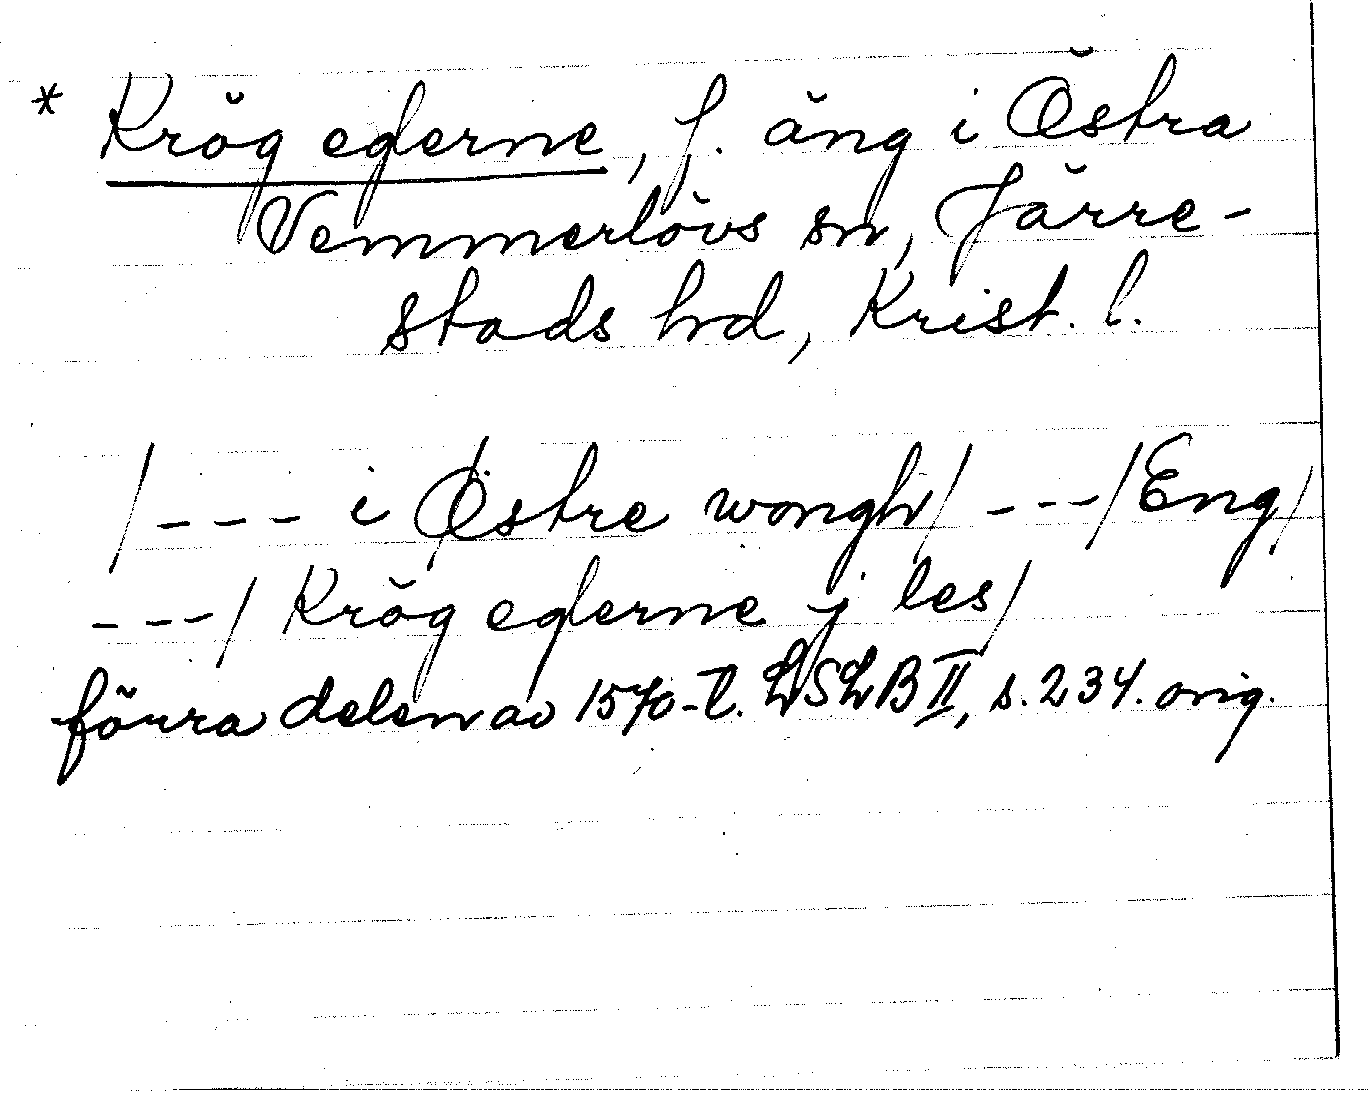 * Krög ederne, f. äng i Östra
Vemmerlövs sn, Järre-
stads hd, Krist. l.
/--- i Østre wongh/ ---/Eng/
---/ Krög ederne j les/
förra delen av 1570-t. LSLB II, s. 234. orig.